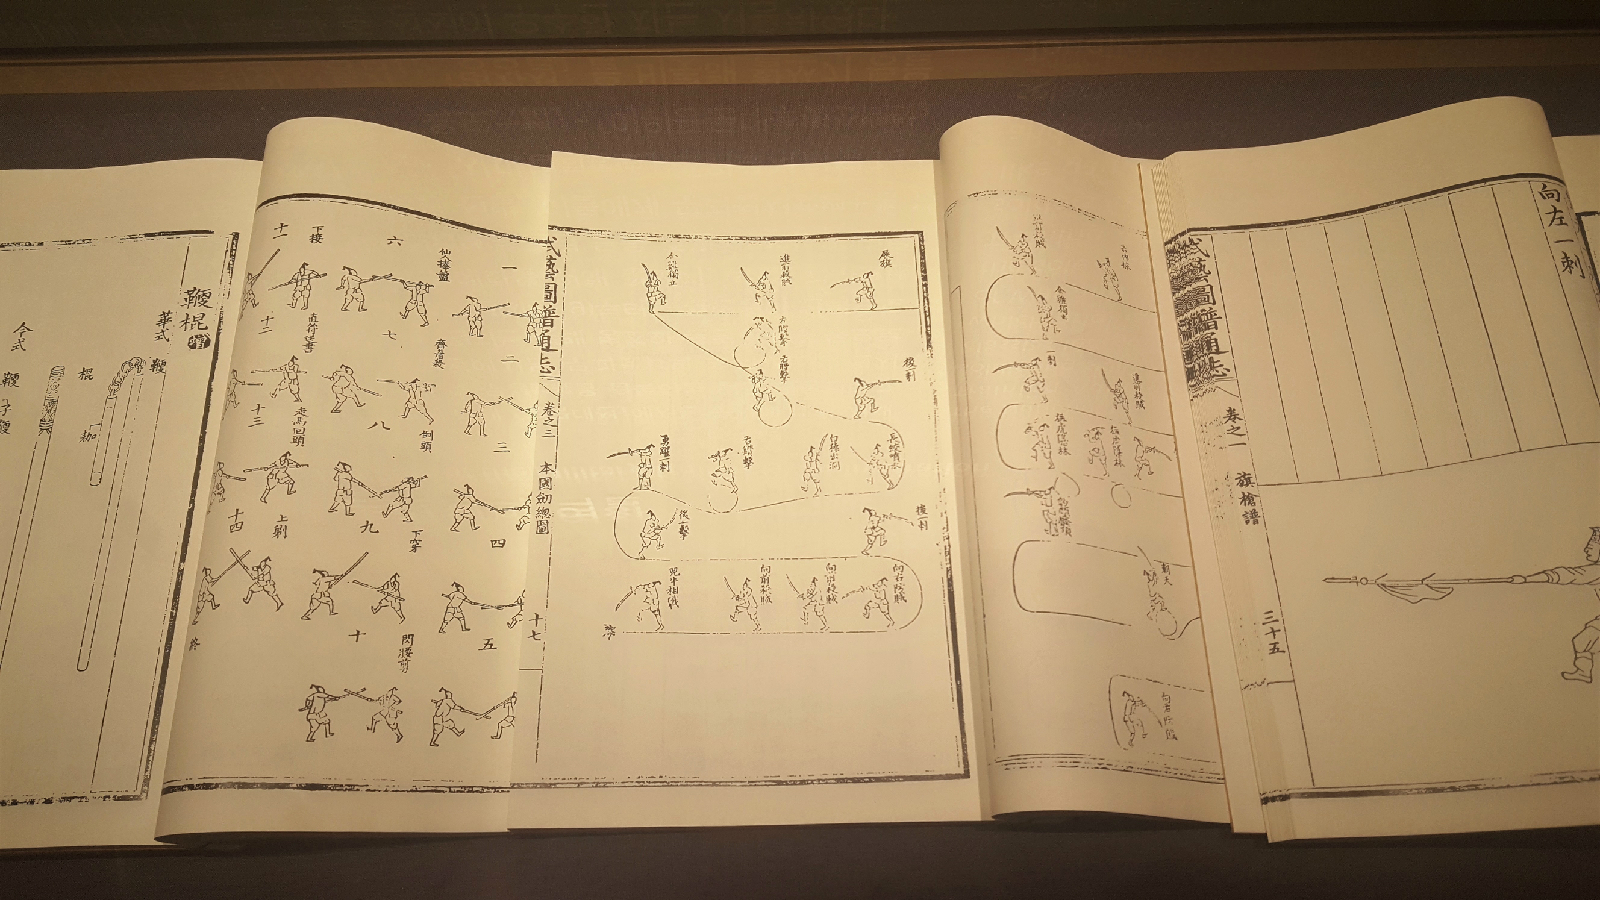 向左一刺
武藝圖譜通志
卷之一
旗槍譜
三十五
一刺
進前殺賊
向右防賊
展旗
進前殺賊
金鷄獨立
左腰擊
右腰擊
後一刺
長蛟噴水
白猿出洞
右腰擊
勇躍一刺
後一擊
後一刺
向右防賊
向前殺賊
向前殺賊
兕牛相戲
終
武藝圖譜通志
卷之三
本國劒總圖
十七
一
二
三
四
五
仙人捧盤
六
齊眉殺
七
倒頭
八
下穿
九
閃腰剪
十
下接
十一
直符送書
十二
走馬回頭
十三
上剃
十四
終
鞭棍
增
華式
鞭
棍
今式
鞭